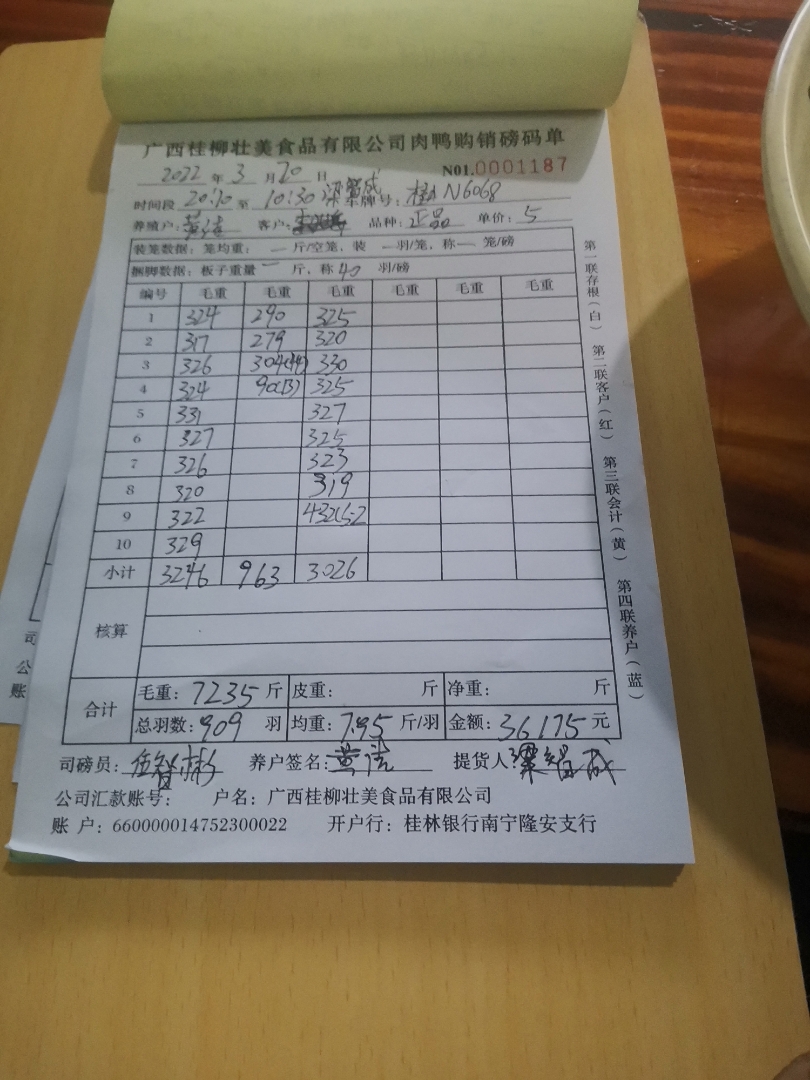 广西桂柳壮美食品有限公司肉鸭购销磅码单
2022 年 3 月 20 日 N01.0001187
时间段 20:10 至 10:30 梁智成 车牌号: 桂A N6068
养殖户: 黄洁 客户: 品种: 正品 单价: 5
装笼数据: 笼均重: 一 斤/空笼, 装 一 羽/笼, 称 一 笼/磅
捆脚数据: 板子重量 一 斤, 称 40 羽/磅
编号 毛重 毛重 毛重 毛重 毛重 毛重
1 324 290 325
2 317 279 320
3 326 304(44) 330
4 324 90(13) 325
5 331 327
6 327 325
7 326 323
8 320 319
9 322 432(52
10 329
小计 3246 963 3026
核算
合计 毛重: 7235 斤 皮重: 斤 净重: 斤
总羽数: 909 羽 均重: 7.95 斤/羽 金额: 36175 元
司磅员: 养户签名: 黄洁 提货人: 梁智成
公司汇款账号: 户名: 广西桂柳壮美食品有限公司
账 户: 660000014752300022 开户行: 桂林银行南宁隆安支行
第一联存根(白) 第二联客户(红) 第三联会计(黄) 第四联养户(蓝)
司
公
账